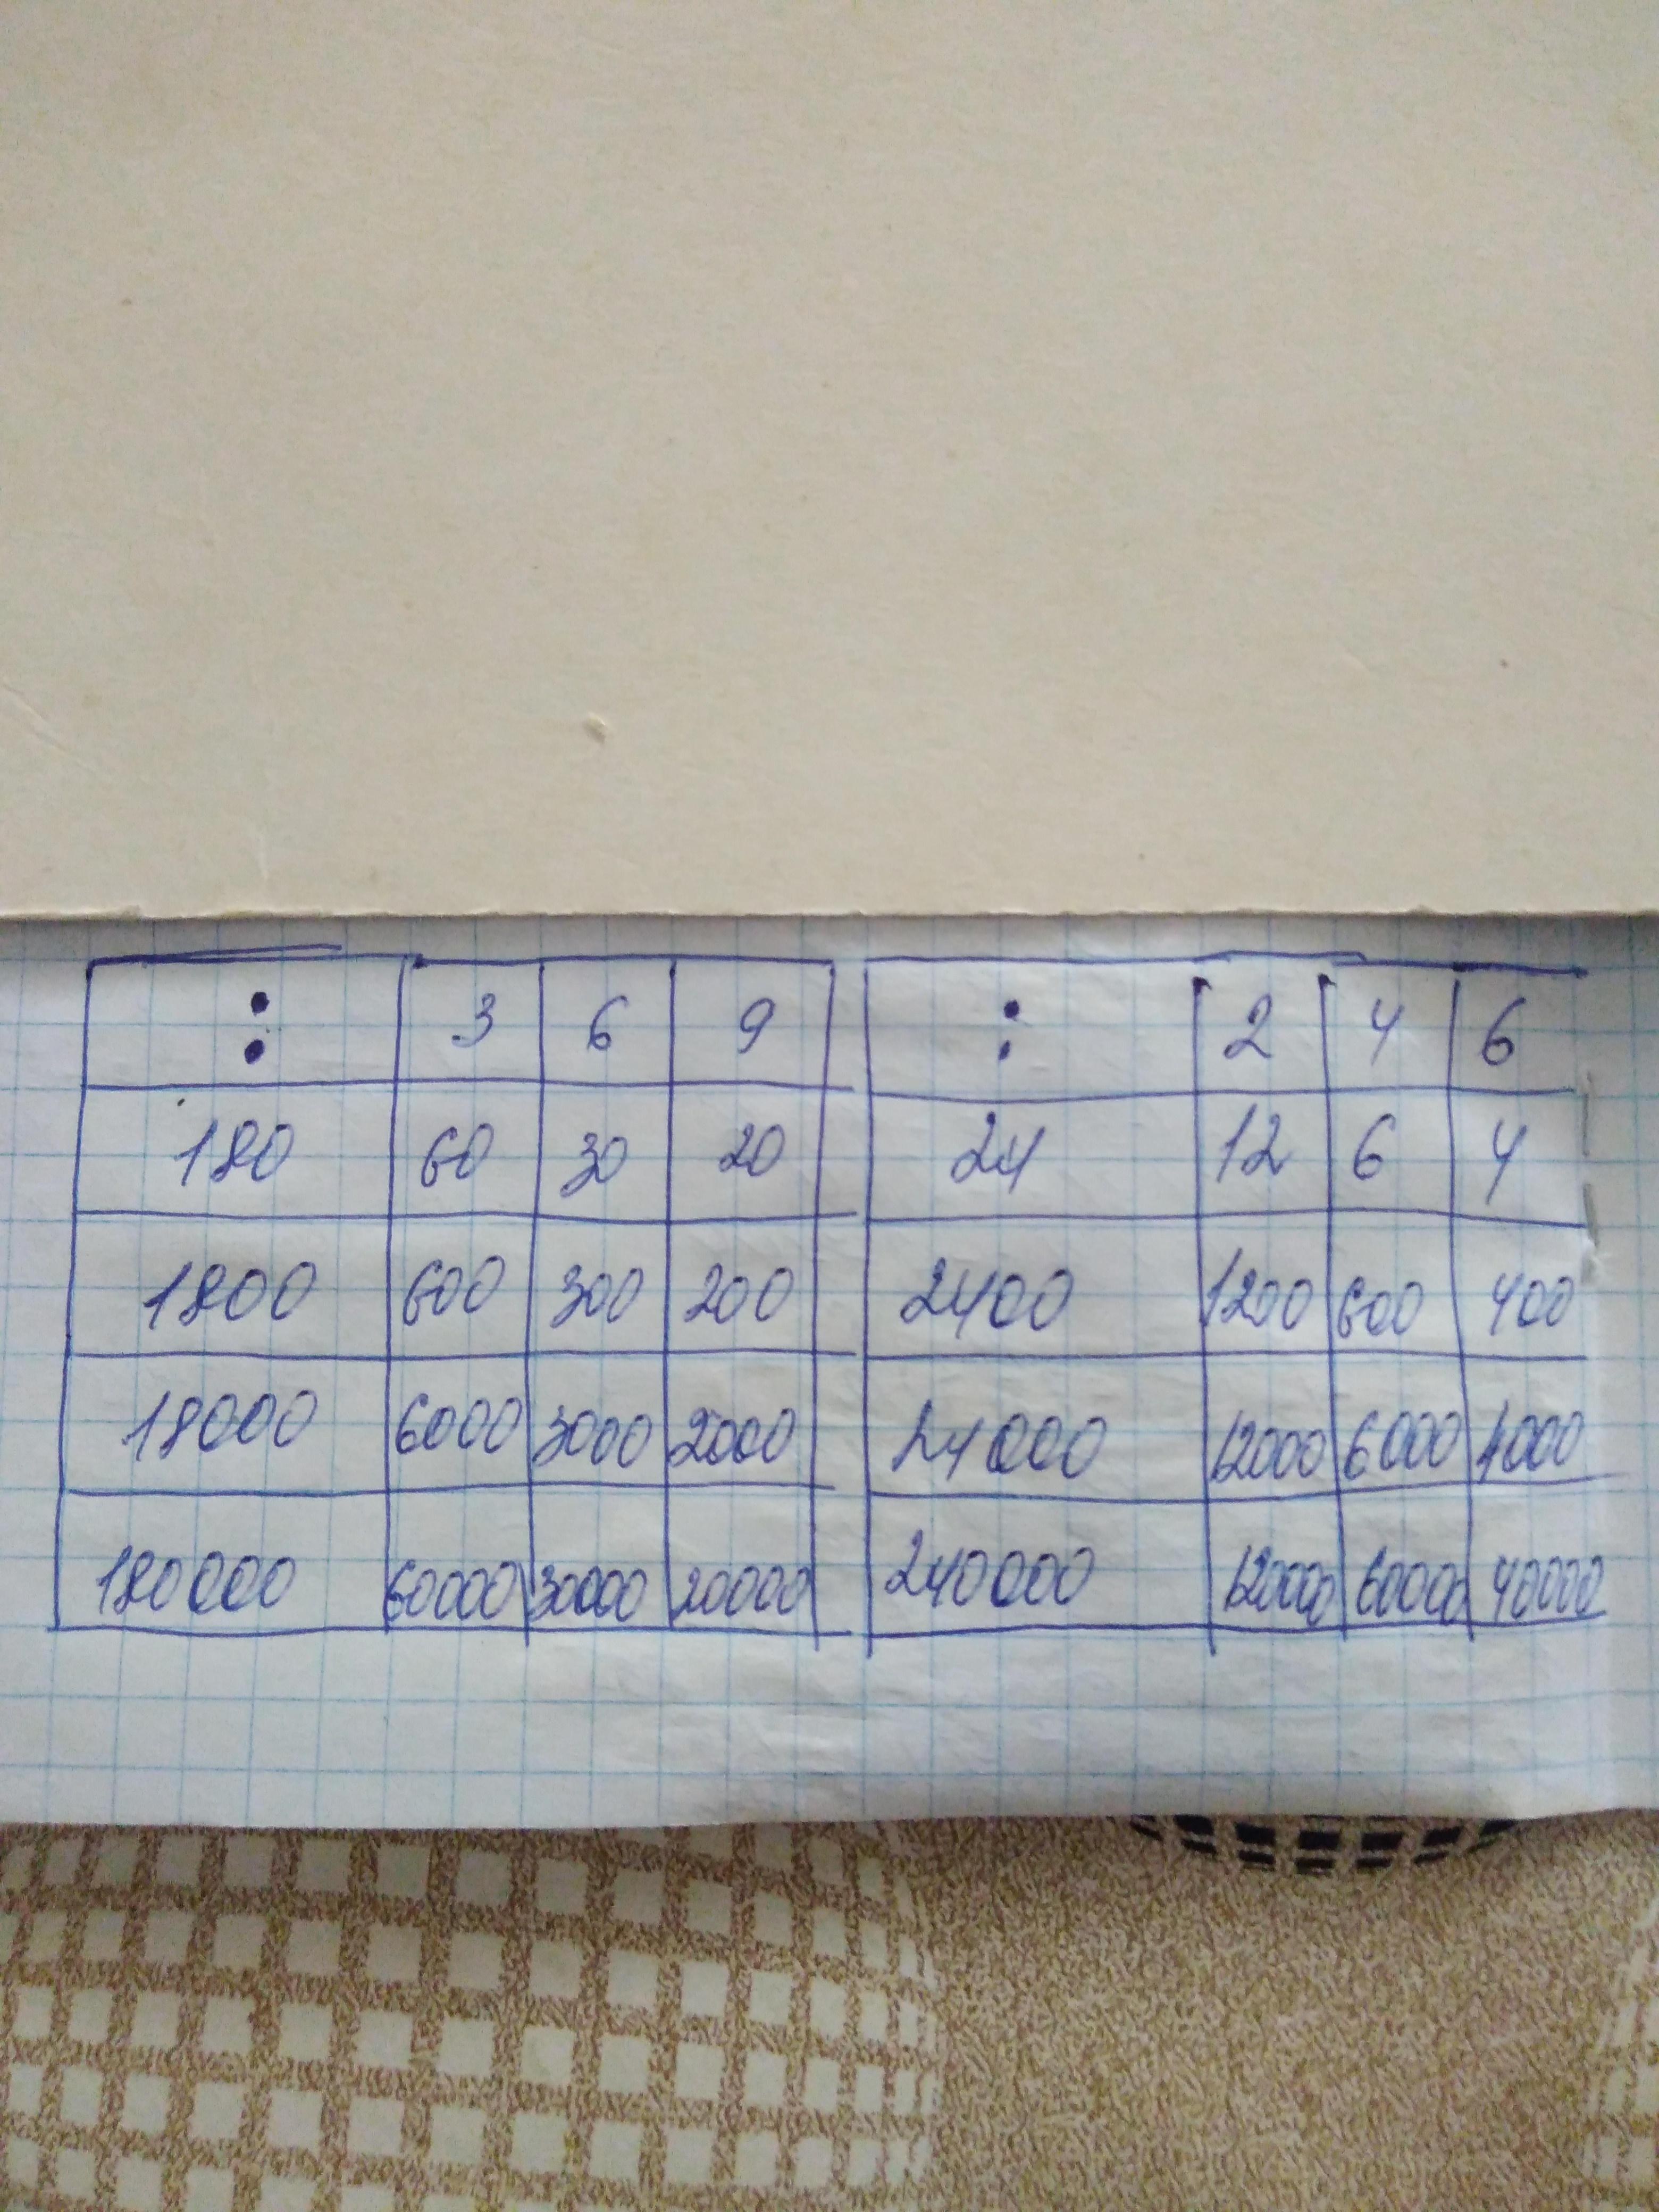 : 3 6 9 : 2 4 6
180 60 30 20 24 12 6 4
1800 600 300 200 2400 1200 600 400
18000 6000 3000 2000 24000 12000 6000 4000
180000 60000 30000 20000 240000 12000 60000 40000